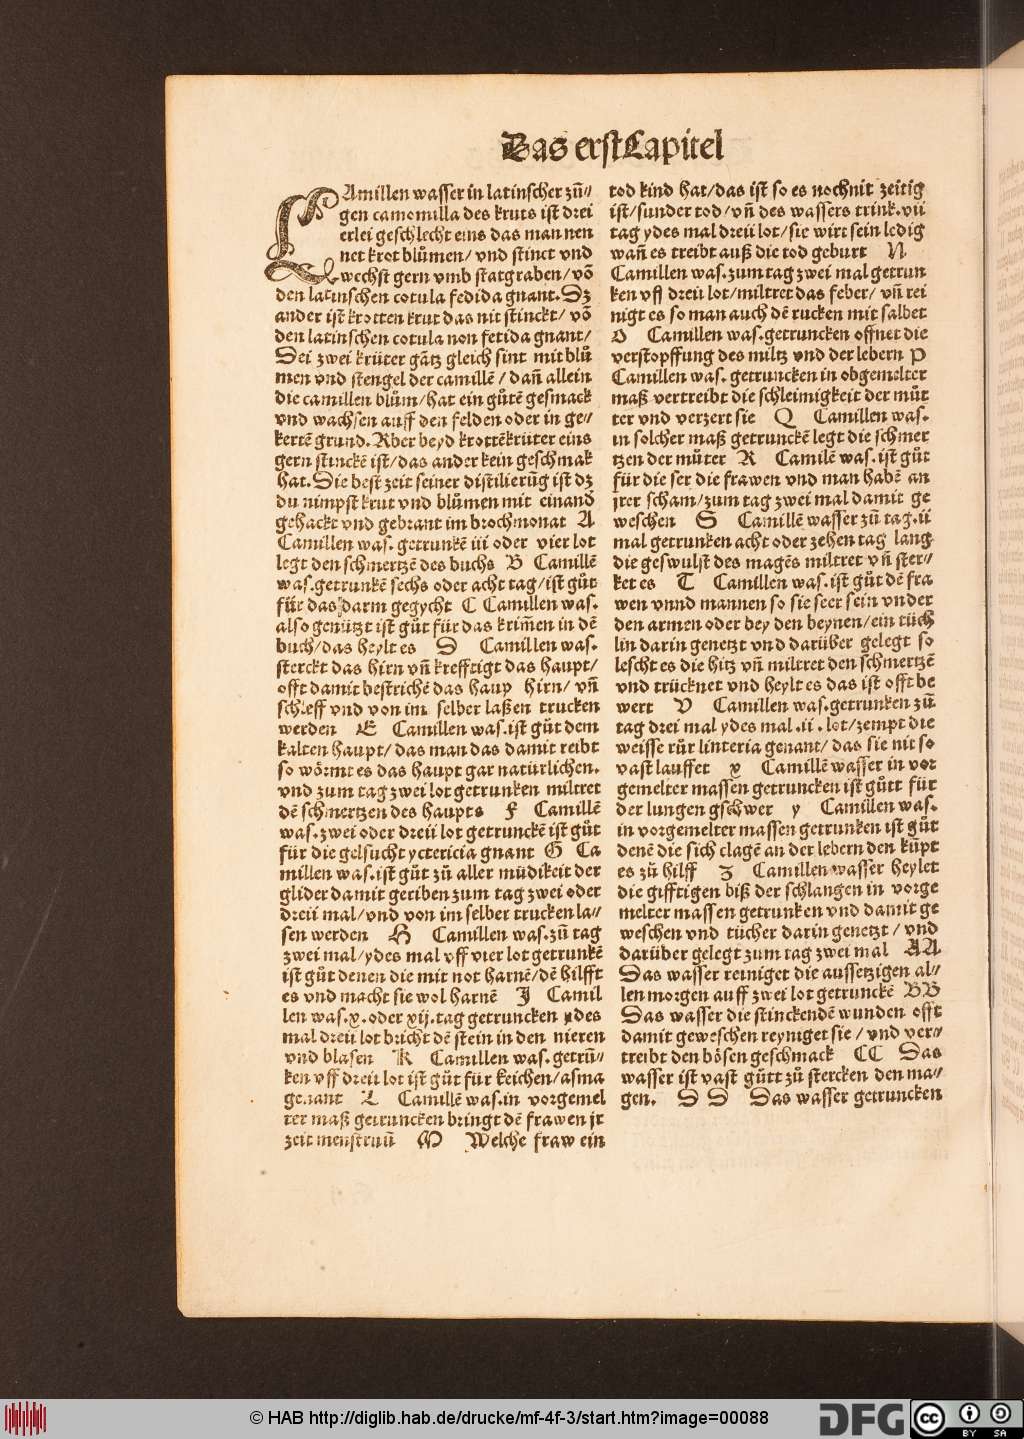 Das erst Capitel
CAmillen wasser in latinscher zů//
gen camomilla des kruts ist drei
erlei geschlecht eins das man nen
net krot blůmen/ vnd stinct vnd
wechst gern vmb statgraben/ võ
den latinschen cotula fedida gnant. Dz
ander ist krotten krut das nit stinckt/ võ
den latinschen cotula non fetida gnant/
Dei zwei krüter gãtz gleich sint mit blů
men vnd stengel der camillẽ / dañ allein
die camillen blům/ hat ein gůtẽ gesmack
vnd wachsen auff den felden oder in ge//
kertẽ grund. Aber beyd krottẽkrüter eins
gern stinckẽ ist/ das ander kein geschmak
hat. Die best zeit seiner distilierũg ist dz
du nimpst krut vnd blůmen mit einand
gehackt vnd gebrant im brochmonat A
Camillen was. getrunkẽ iii oder vier lot
legt den schmertzẽ des buchs B Camillẽ
was. getrunkẽ sechs oder acht tag/ ist gůt
für das darm gegycht C Camillen was.
also genützt ist gůt für das krim̃en in dẽ
buch/ das heylt es D Camillen was.
sterckt das hirn vñ krefftigt das haupt/
offt damit bestrichẽ das haup hirn/ vñ
schleff vnd von im selber laßen trucken
werden E Camillen was. ist gůt dem
kalten haupt/ das man das damit reibt
so wörmt es das haupt gar natürlichen.
vnd zum tag zwei lot getrunken miltret
dẽ schmertzen des haupts F Camillẽ
was. zwei oder dreii lot getrunckẽ ist gůt
für die gelsucht yctericia gnant G Ca
millen was. ist gůt zů aller müdikeit der
glider damit geriben zum tag zwei oder
dreii mal/ vnd von im selber trucken la//
sen werden H Camillen was. zů tag
zwei mal/ ydes mal vff vier lot getrunkẽ
ist gůt denen die mit not harnẽ/ dẽ hilfft
es vnd macht sie wol harnẽ J Camil
len was. x. oder xij. tag getruncken ydes
mal dreii lot bricht dẽ stein in den nieren
vnd blasen K Camillen was. getrũ//
ken vff dreii lot ist gůt für keichen/ asma
genant L Camillẽ was. in vorgemel
ter maß getruncken bringt dẽ frawen jr
zeit menstruũ M Welche fraw ein
tod kind hat/ das ist so es noch nit zeitig
ist/ sunder tod/ vñ des wassers trink. vii
tag ydes mal dreii lot/ sie wirt sein ledig
wañ es treibt auß die tod geburt N
Camillen was. zum tag zwei mal getrun
ken vff dreii lot/ miltret das feber/ vñ rei
nigt es so man auch dẽ rucken mit salbet
O Camillen was. getruncken offnet die
verstopffung des miltz vnd der lebern P
Camillen was. getruncken in obgemelter
maß vertreibt die schleimigkeit der můt
ter vnd verzert sie Q Camillen was.
in solcher maß getrunckẽ legt die schmer
tzen der můter R Camilẽ was. ist gůt
für die ser die frawen vnd man habẽ an
jrer scham/ zum tag zwei mal damit ge
weschen S Camillẽ wasser zů tag. ii
mal getrunken acht oder zehen tag lang
die geswulst des magẽs miltret vñ ster//
ket es T Camillen was. ist gůt dẽ fra
wen vnnd mannen so sie seer sein vnder
den armen oder bey den beynen/ ein tüch
lin darin genetzt vnd darüber gelegt so
lescht es die hitz vñ miltret den schmertzẽ
vnd trücknet vnd heylt es das ist offt be
wert V Camillen was. getrunken zů
tag drei mal ydes mal. ii. lot/ zempt die
weisse růr linteria genant/ das sie nit so
vast lauffet x Camillẽ wasser in vor
gemelter massen getruncken ist gůtt für
der lungen gschwer y Camillen was.
in vorgemelter massen getrunken ist gůt
denẽ die sich clagẽ an der lebern den kũpt
es zů hilff Z Camillen wasser heylet
die gifftigen biß der schlangen in vorge
melter massen getrunken vnd damit ge
weschen vnd tücher darin genetzt / vnd
darüber gelegt zum tag zwei mal AA
Das wasser reiniget die aussetzigen al//
len morgen auff zwei lot getrunckẽ BB
Das wasser die stinckendẽ wunden offt
damit geweschen reyniget sie / vnd ver//
treibt den bösen geschmack CC Das
wasser ist vast gůtt zů stercken den ma//
gen. DD Das wasser getruncken
© HAB http://diglib.hab.de/drucke/mf-4f-3/start.htm?image=00088
DFG
cc BY SA